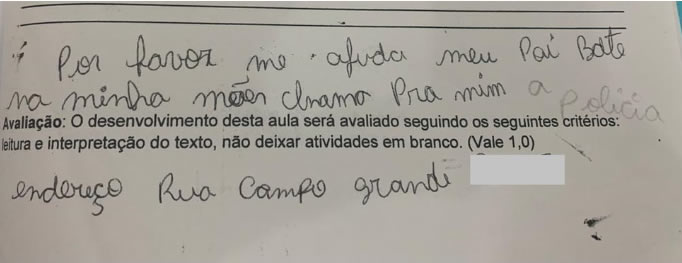 Por favor me ajuda meu Pai Bate
na minha mães chamo Pra mim a Policia
Avaliação: O desenvolvimento desta aula será avaliado seguindo os seguintes critérios:
leitura e interpretação do texto, não deixar atividades em branco. (Vale 1,0)
endereço Rua Campo grandi